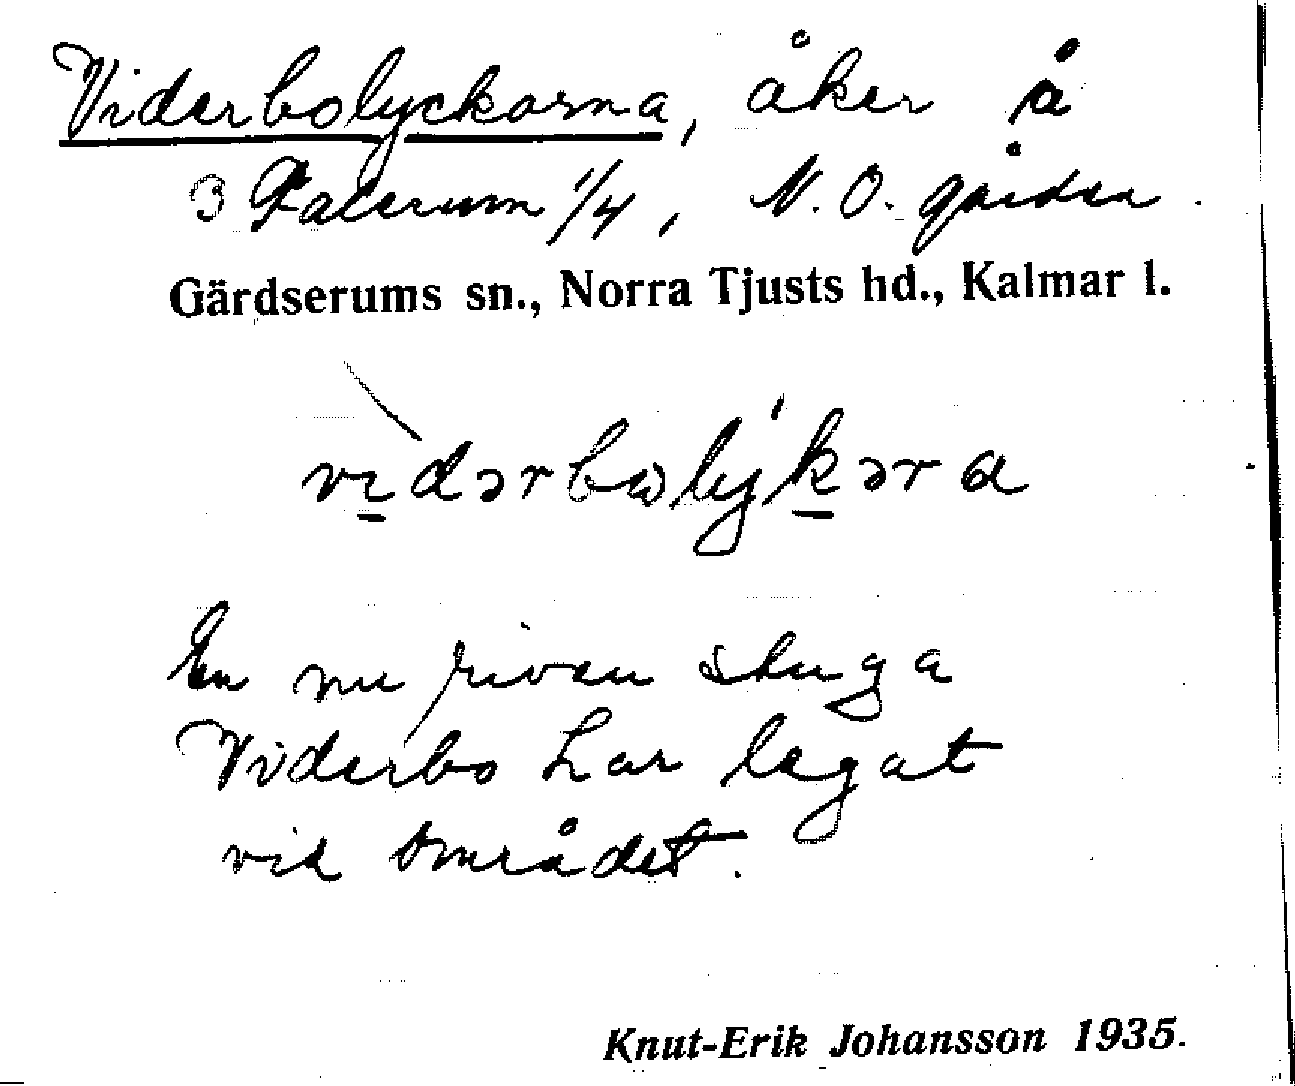 Viderbolyckorna, åker å
3 Falerum 1/4, N.O. gården.
Gärdserums sn., Norra Tjusts hd., Kalmar l.
vidərbωly'kəra
En nu riven stuga
Viderbo har legat
vid området.
Knut-Erik Johansson 1935.